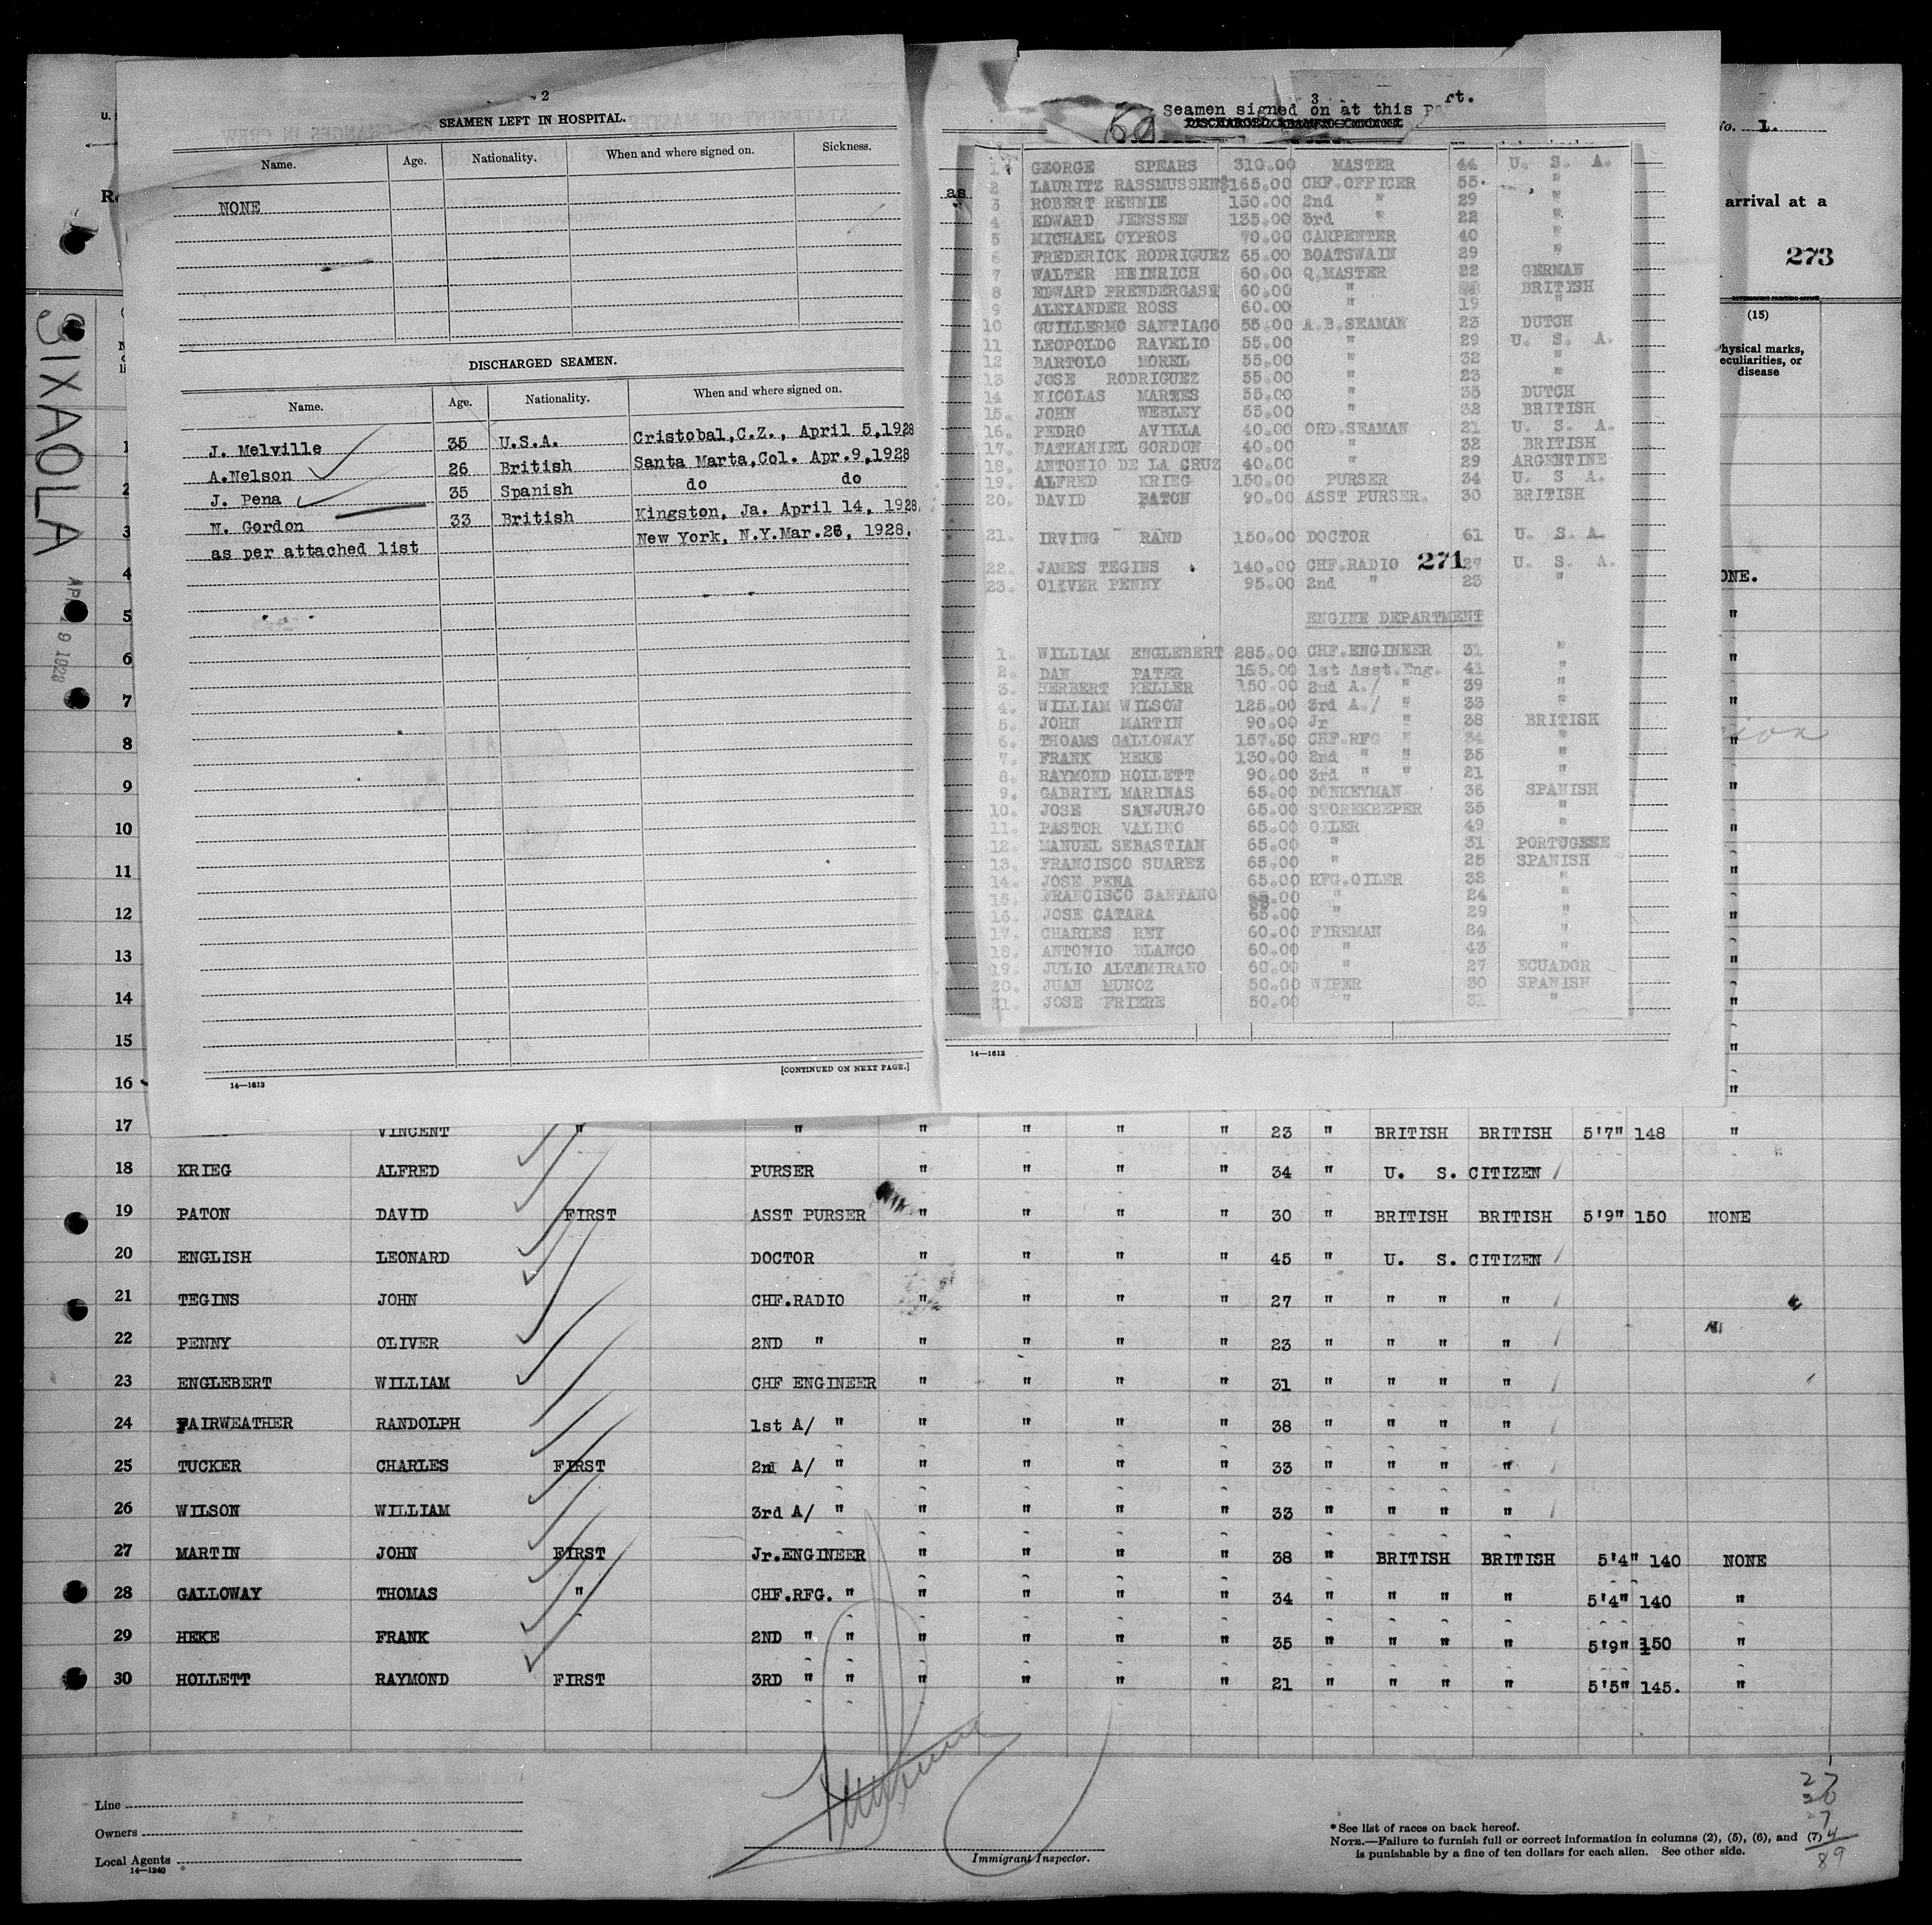 2
SEAMEN LEFT IN HOSPITAL.
Name. Age. Nationality. When and where signed on. Sickness.
NONE
DISCHARGED SEAMEN.
Name. Age. Nationality. When and where signed on.
J. Melville 35 U.S.A. Cristobal,C.Z., April 5,1928
A.Nelson 26 British Santa Marta,Col. Apr.9,1928
J. Pena 35 Spanish do do
N. Gordon 33 British Kingston, Ja. April 14, 1928.
as per attached list New York, N.Y.Mar.26, 1928.
14—1613
[CONTINUED ON NEXT PAGE.]
3
Seamen signed on at this
DISCHARGED SEAMEN
1 GEORGE SPEARS 310.00 MASTER 44 U. S. A.
2 LAURITZ RASSMUSSEN $165.00 CHF.OFFICER 55. "
3 ROBERT RENNIE 150.00 2nd " 29 "
4 EDWARD JENSSEN 135.00 3rd " 22 "
5 MICHAEL CYPROS 70.00 CARPENTER 40 "
6 FREDERICK RODRIGUEZ 65.00 BOATSWAIN 29 "
7 WALTER HEINRICH 60.00 Q.MASTER 22 GERMAN
8 EDWARD PRENDERGAST 60.00 " BRITISH
9 ALEXANDER ROSS 60.00 " 19 "
10 GUILLERMO SANTIAGO 55.00 A.B.SEAMAN 23 DUTCH
11 LEOPOLDO RAVELIO 55.00 " 29 U. S. A.
12 BARTOLO MOREL 55.00 " 32 "
13 JOSE RODRIGUEZ 55.00 " 23 "
14 NICOLAS MARTES 55.00 " 35 DUTCH
15. JOHN WEBLEY 55.00 " 32 BRITISH
16. PEDRO AVILLA 40.00 ORD.SEAMAN 21 U. S. A.
17. NATHANIEL GORDON 40.00 " 32 BRITISH
18. ANTONIO DE LA CRUZ 40.00 " 29 ARGENTINE
19. ALFRED KRIEG 150.00 PURSER 34 U. S A.
20. DAVID PATON 90.00 ASST PURSER. 30 BRITISH
21. IRVING RAND 150.00 DOCTOR 61 U. S. A.
22. JAMES TEGINS 140.00 CHF.RADIO 271 27 U. S. A.
23. OLIVER PENNY 95.00 2nd " 23 "
ENGINE DEPARTMENT
1. WILLIAM ENGLEBERT 285.00 CHF.ENGINEER 31 "
2. DAN PATER 165.00 1st Asst.Eng. 41 "
3. HERBERT KELLER 150.00 2nd A./ " 39 "
4. WILLIAM WILSON 125.00 3rd A./ " 33 "
5. JOHN MARTIN 90.00 Jr " 38 BRITISH
6. THOAMS GALLOWAY 157.50 CHF.RFG " 34 "
7. FRANK HEKE 130.00 2nd " " 35 "
8. RAYMOND HOLLETT 90.00 3rd " " 21 "
9. GABRIEL MARINAS 65.00 DONKEYMAN 36 SPANISH
10. JOSE SANJURJO 65.00 STOREKEEPER 35 "
11. PASTOR VALINO 65.00 OILER 49 "
12. MANUEL SEBASTIAN 65.00 " 31 PORTUGESE
13. FRANCISCO SUAREZ 65.00 " 25 SPANISH
14. JOSE PENA 65.00 RFG.OILER 32 "
15. FRANCISCO SANTANO .00 " 24 "
16. JOSE CATARA 65.00 " 29 "
17. CHARLES REY 60.00 FIREMAN 24 "
18. ANTONIO BLANCO 60.00 " 43 "
19. JULIO ALTAMIRANO 60.00 " 27 ECUADOR
20. JUAN MUNOZ 50.00 WIPER 30 SPANISH
21. JOSE FRIERE 50.00 " 31 "
14—1613
No. 1.
as
arrival at a
273
(15)
Physical marks, peculiarities, or disease
SIXAOLA
APR 19 1928
1
2
3
4
5
6
7
8
9
10
11
12
13
14
15
16
17 VINCENT " " " " " " 23 " BRITISH BRITISH 5'7" 148 "
18 KRIEG ALFRED PURSER " " " " 34 " U. S. CITIZEN
19 PATON DAVID FIRST ASST PURSER " " " " 30 " BRITISH BRITISH 5'9" 150 NONE
20 ENGLISH LEONARD DOCTOR " " " " 45 " U. S. CITIZEN
21 TEGINS JOHN CHF.RADIO " " " " 27 " " " "
22 PENNY OLIVER 2ND " " " " " 23 " " " "
23 ENGLEBERT WILLIAM CHF ENGINEER " " " " 31 " " " "
24 FAIRWEATHER RANDOLPH 1st A/ " " " " " 38 " " " "
25 TUCKER CHARLES FIRST 2nd A/ " " " " " 33 " " " "
26 WILSON WILLIAM 3rd A/ " " " " " 33 " " " "
27 MARTIN JOHN FIRST Jr.ENGINEER " " " " 38 " BRITISH BRITISH 5'4" 140 NONE
28 GALLOWAY THOMAS " CHF.RFG. " " " " " 34 " " " " 5'4" 140 "
29 HEKE FRANK 2ND " " " " " " 35 " " " " 5'9" 150 "
30 HOLLETT RAYMOND FIRST 3RD " " " " " " 21 " " " " 5'5" 145. "
Line
Owners
Local Agents
14—1240
Immigrant Inspector.
*See list of races on back hereof.
NOTE.—Failure to furnish full or correct information in columns (2), (5), (6), and (7)
is punishable by a fine of ten dollars for each alien. See other side.
27
30
27
4
89